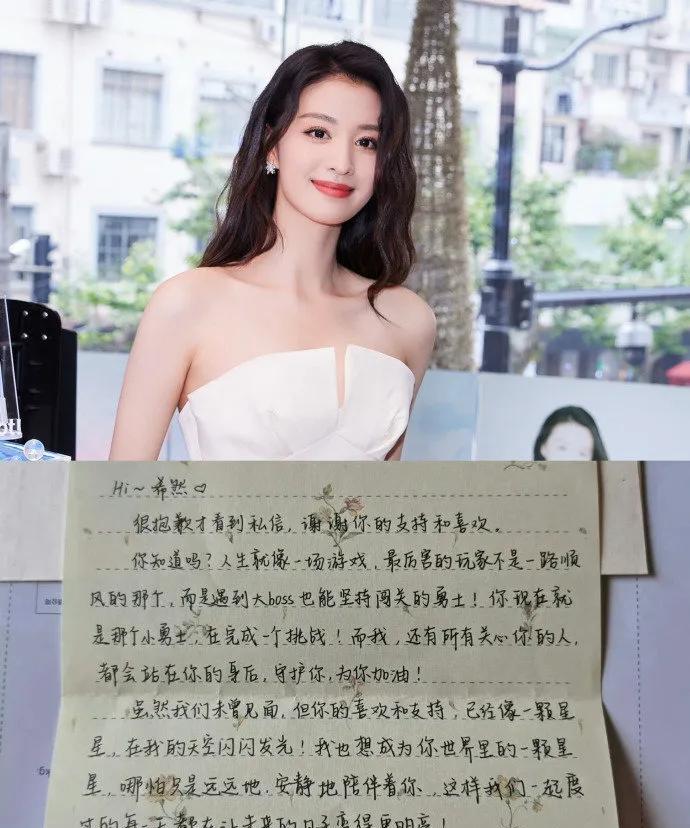 Hi~希然♡
很抱歉才看到私信，谢谢你的支持和喜欢。
你知道吗？人生就像一场游戏，最厉害的玩家不是一路顺
风的那个，而是遇到大boss也能坚持闯关的勇士！你现在就
是那个小勇士，在完成一个挑战！而我，还有所有关心你的人，
都会站在你的身后，守护你，为你加油！
虽然我们未曾见面，但你的喜欢和支持，已经像一颗星
星，在我的天空闪闪发光！我也想成为你世界里的一颗星
星，哪怕只是远远地，安静地陪伴着你，这样我们一起度
过的每一天都在让未来的日子变得更明亮！